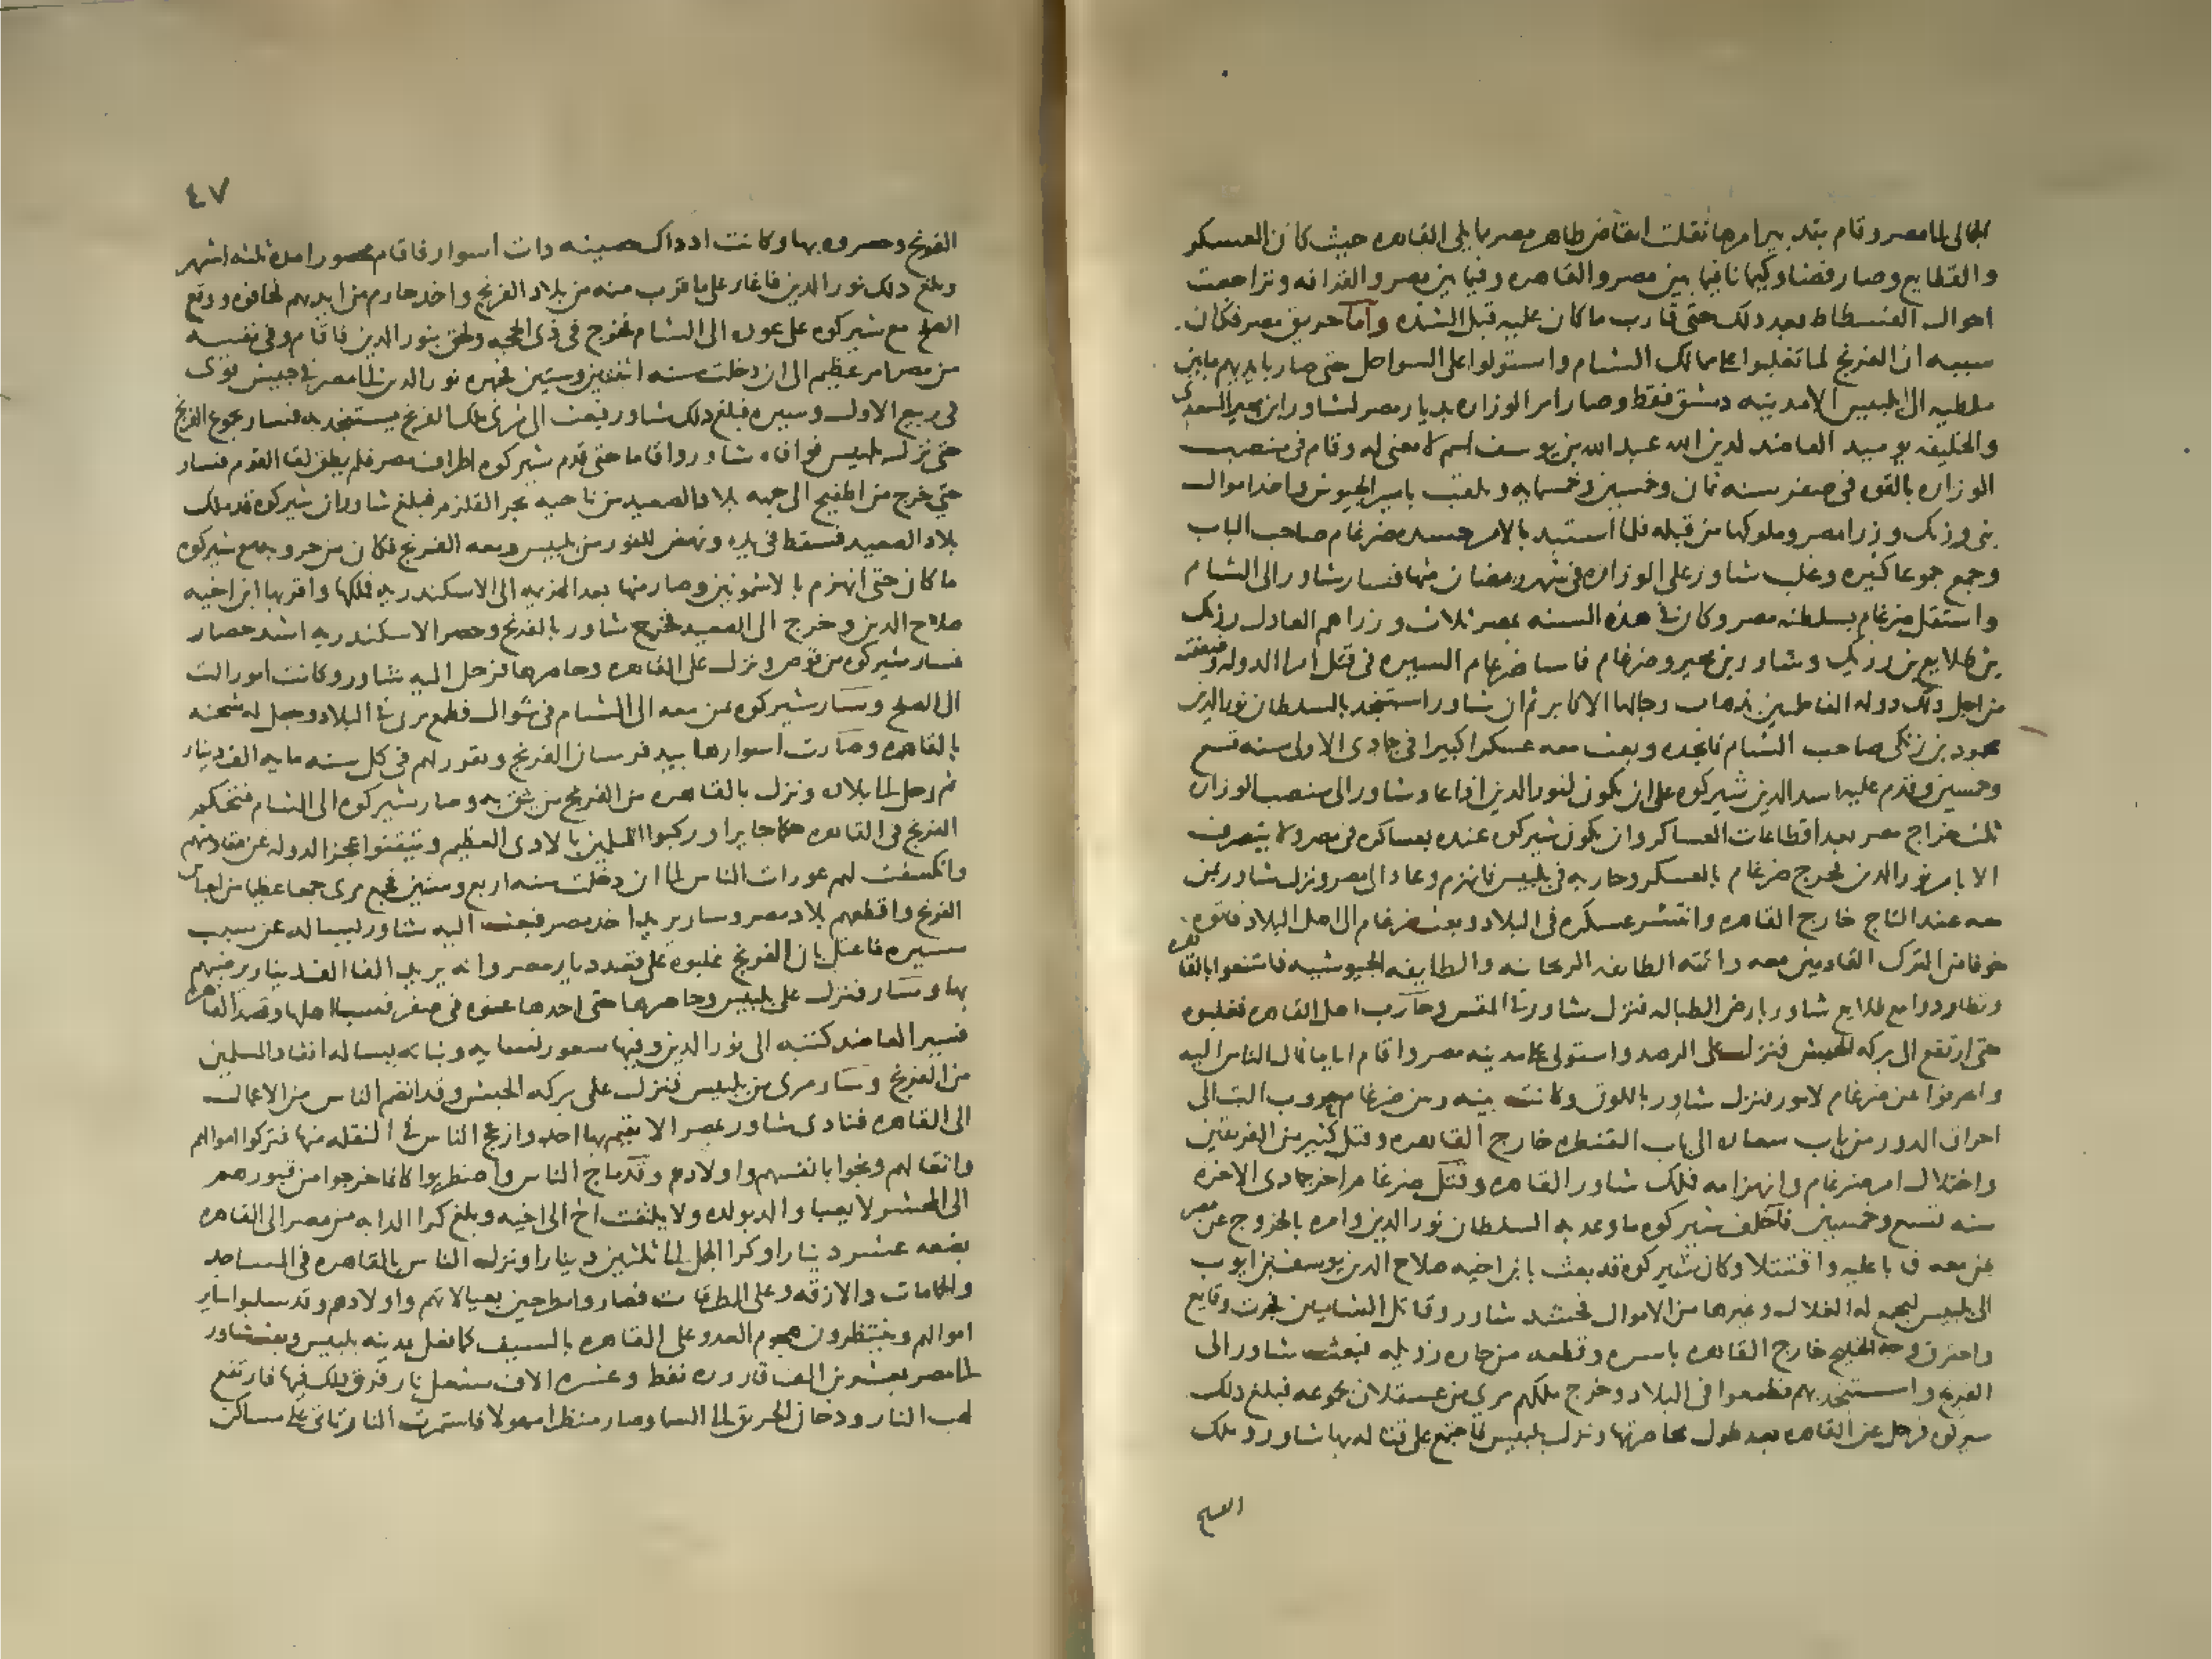 الجمالى الى مصر وقام بتدبير امرها نقلت انقاض ظاهر مصر مما يلى القاهره حيث كان العسكر
والقطايع وصار فضا وكيمانا فيما بين مصر والقاهره وفيما بين مصر والقرافه وتراجعت
احوال الفسطاط بعد ذلك حتى قارب ما كان عليه قبل الشده وأما حريق مصر فكان
سببه ان الفرنج لما تغلبوا على ممالك الشام واستولوا على السواحل حتى صار بايديهم ما بين
ملطيه الى بلبيس الا مدينه دمشق فقط وصار امر الوزاره بديار مصر لشاور ابن مجير السعدى
والخليفه يوميد العاضد لدين الله عبد الله بن يوسف اسم لا معنى له وقام فى منصب
الوزاره بالقوه فى صفر سنه ثمان وخمسين وخمسمايه وتلقب بامير الجيوش واخذ اموال
بنى رزيك وزرا مصر وملوكها من قبله فلما استبد بالامر حسده ضرغام صاحب الباب
وجمع جموعا كثيره وغلب شاور على الوزاره فى شهر رمضان منها فسار شاور الى الشام
واستقل ضرغام بسلطنه مصر وكان فى هذه السنه بمصر ثلاث وزرا هم العادل رزيك
بن طلايع بن رزيك وشاور بن مجير وضرغام فاسا ضرغام السيره فى قتل امرا الدوله وضعفت
من اجل ذلك دوله الفاطميين بذهاب رجالها الاكابر ثم ان شاور استنجد بالسلطان نور الدين
محمود بن زنكى صاحب الشام فانجده وبعث معه عسكرا كبيرا فى جمادى الاولى سنه تسع
وخمسين وقدم عليه اسد الدين شيركوه على ان يكون لنور الدين اذا عاد شاور الى منصب الوزاره
ثلث خراج مصر بعد اقطاعات العساكر وان يكون شيركوه عنده بعساكره فى مصر ولا يتصرف
الا بامر نور الدين فخرج ضرغام بالعسكر وحاربه فى بلبيس فانهزم وعاد الى مصر ونزل شاور بمن
معه عند التاج خارج القاهره وانتشر عسكره فى البلاد وبعث ضرغام الى اهل البلاد فاتوه
خوفا من الترك القادمين معه واتته الطايفه الريحانيه والطايفه الجيوشيه فامتنعوا بالقاهره
وتطاردوا مع طلايع شاور بارض الطباله فنزل شاور فى المقس وحارب اهل القاهره فغلبوه
حتى ارتفع الى بركه الحبش فنزل على الرصد واستولى على مدينه مصر واقام اياما فمال الناس اليه
وانحرفوا عن ضرغام لامور فنزل شاور باللوق وكانت بينه وبين ضرغام حروب الت الى
احراق الدور من باب سعاده الى باب القنطره خارج القاهره وقتل كثير من الفريقين
واختلال امر ضرغام وانهزامه فملك شاور القاهره وقتل ضرغام اخر جمادى الاخره
سنه تسع وخمسين فاخلف شيركوه ما وعد به السلطان نور الدين وامره بالخروج عن مصر
فابا عليه واقتتلا وكان شيركوه قد بعث بابن اخيه صلاح الدين يوسف بن ايوب
الى بلبيس ليجمع له الغلال وغيرها من الاموال فحشد شاور وقاتل الشاميين فجرت وقايع
واحترق وجه الخليج خارج القاهره باسره وقطعه من حاره زويله فبعث شاور الى
الفرنج واستنجد بهم فطمعوا فى البلاد وخرج ملكهم مرى من عسقلان بجموعه فبلغ ذلك
شيركوه فرحل عن القاهره بعد طول محاصرتها ونزل بلبيس فاجتمع على قتاله بها شاور وملك
الفرنج
٤٧
الفرنج وحصروه بها وكانت اذ ذاك حصينه ذات اسوار فاقام محصورا مده ثلثه اشهر
وبلغ ذلك نور الدين فاغار على ما قرب منه من بلاد الفرنج واخذ حارم من ايديهم فخافوه ووقع
الصلح مع شيركوه على عوده الى الشام فخرج فى ذى الحجه ولحق بنور الدين فاقام وفى نفسه
من مصر امر عظيم الى ان دخلت سنه اثنتين وستين فجهزه نور الدين الى مصر فى جيش قوى
فى ربيع الاول وسيره فبلغ ذلك شاور فبعث الى مرى ملك الفرنج يستنجد به فسار بجموع الفرنج
حتى نزل بلبيس فوافاه شاور واقاما حتى قدم شيركوه اطراف مصر فلم يطق لقا القوم فسار
حتى خرج من اطفيح الى جهه بلاد الصعيد من ناحيه بحر القلزم فبلغ شاور ان شيركوه قد ملك
بلاد الصعيد فسقط فى يده ونهض للفور من بلبيس ومعه الفرنج فكان من حروبه مع شيركوه
ما كان حتى انهزم بالاشمونين وصار منها بعد الهزيمه الى الاسكندريه فملكها واقر بها ابن اخيه
صلاح الدين وخرج الى الصعيد فخرج شاور بالفرنج وحصر الاسكندريه اشد حصار
فسار شيركوه من قوص ونزل على القاهره وحاصرها فرحل اليه شاور وكانت امور الت
الى الصلح وسار شيركوه بمن معه الى الشام فى شوال فطمع مرى فى البلاد وجعل له شحنه
بالقاهره وصارت اسوارها بيد فرسان الفرنج وتقرر لهم فى كل سنه مايه الف دينار
ثم رحل الى بلاده ونزل بالقاهره من الفرنج من يثق به وصار شيركوه الى الشام فتحكم
الفرنج فى القاهره حكما جايرا وركبوا المسلمين بالاذى العظيم وتيقنوا عجز الدوله عن مقاومتهم
وانكشفت لهم عورات الناس الى ان دخلت سنه اربع وستين فجمع مرى جمعا عظيما من اجناس
الفرنج واقطعهم بلاد مصر وسار يريد اخذ مصر فبعث اليه شاور ليساله عن سبب
مسيره فاعتل بان الفرنج غلبوه على قصد ديار مصر وانه يريد الفا الف دينار يرضيهم
بها وسار فنزل على بلبيس وحاصرها حتى اخذها عنوه فى صفر فسبا اهلها وقصد القاهره
فسير العاضد كتبه الى نور الدين وفيها شعور نسايه وبناته يساله انقاذ المسلمين
من الفرنج وسار مرى من بلبيس فنزل على بركه الحبش وقد انضم الناس من الاعمال
الى القاهره فنادى شاور بمصر الا يقيم بها احد وازعج الناس فى النقله منها فتركوا اموالهم
واثقالهم ونجوا بانفسهم واولادهم وقد ماج الناس واضطربوا كانما خرجوا من قبورهم
الى المحشر لا يعبا والد بولده ولا يلتفت اخ الى اخيه وبلغ كرا الدابه من مصر الى القاهره
بضعه عشر دينارا وكرا الجمل الى ثلثين دينارا ونزلوا الناس بالقاهره فى المساجد
والحمامات والازقه وعلى الطرقات فصاروا مطرحين بعيالاتهم واولادهم وقد سلبوا ساير
اموالهم وينتظرون هجوم العدو على القاهره بالسيف كما فعل بمدينه بلبيس وبعث شاور
الى مصر بعشرين الف قاروره نفط وعشره الاف مشعل نار فرق ذلك فيها فارتفع
لهب النار ودخان الحريق الى السما وصار منظرا مهولا فاستمرت النار تاتى على مساكن